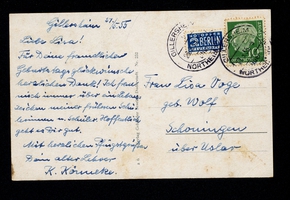 Gillersheim 27/5.55
Liebe Lisa!
Für Deine freundlichen
Geburtstagsglückwünsche
herzlichen Dank! Ich freue
mich immer über ein Lebens-
zeichen meiner früheren Schüle-
rinnen u. Schüler. Hoffentlich
geht es Dir gut.
Mit herzlichen Pfingstgrüßen
Dein alter Lehrer
K. Könneke.
NOTOPFER
2 BERLIN
STEUERMARKE
GILLERSHEIM
NORTHEIM
10
Frau Lisa Voge
geb. Wolf
Schoningen
über Uslar